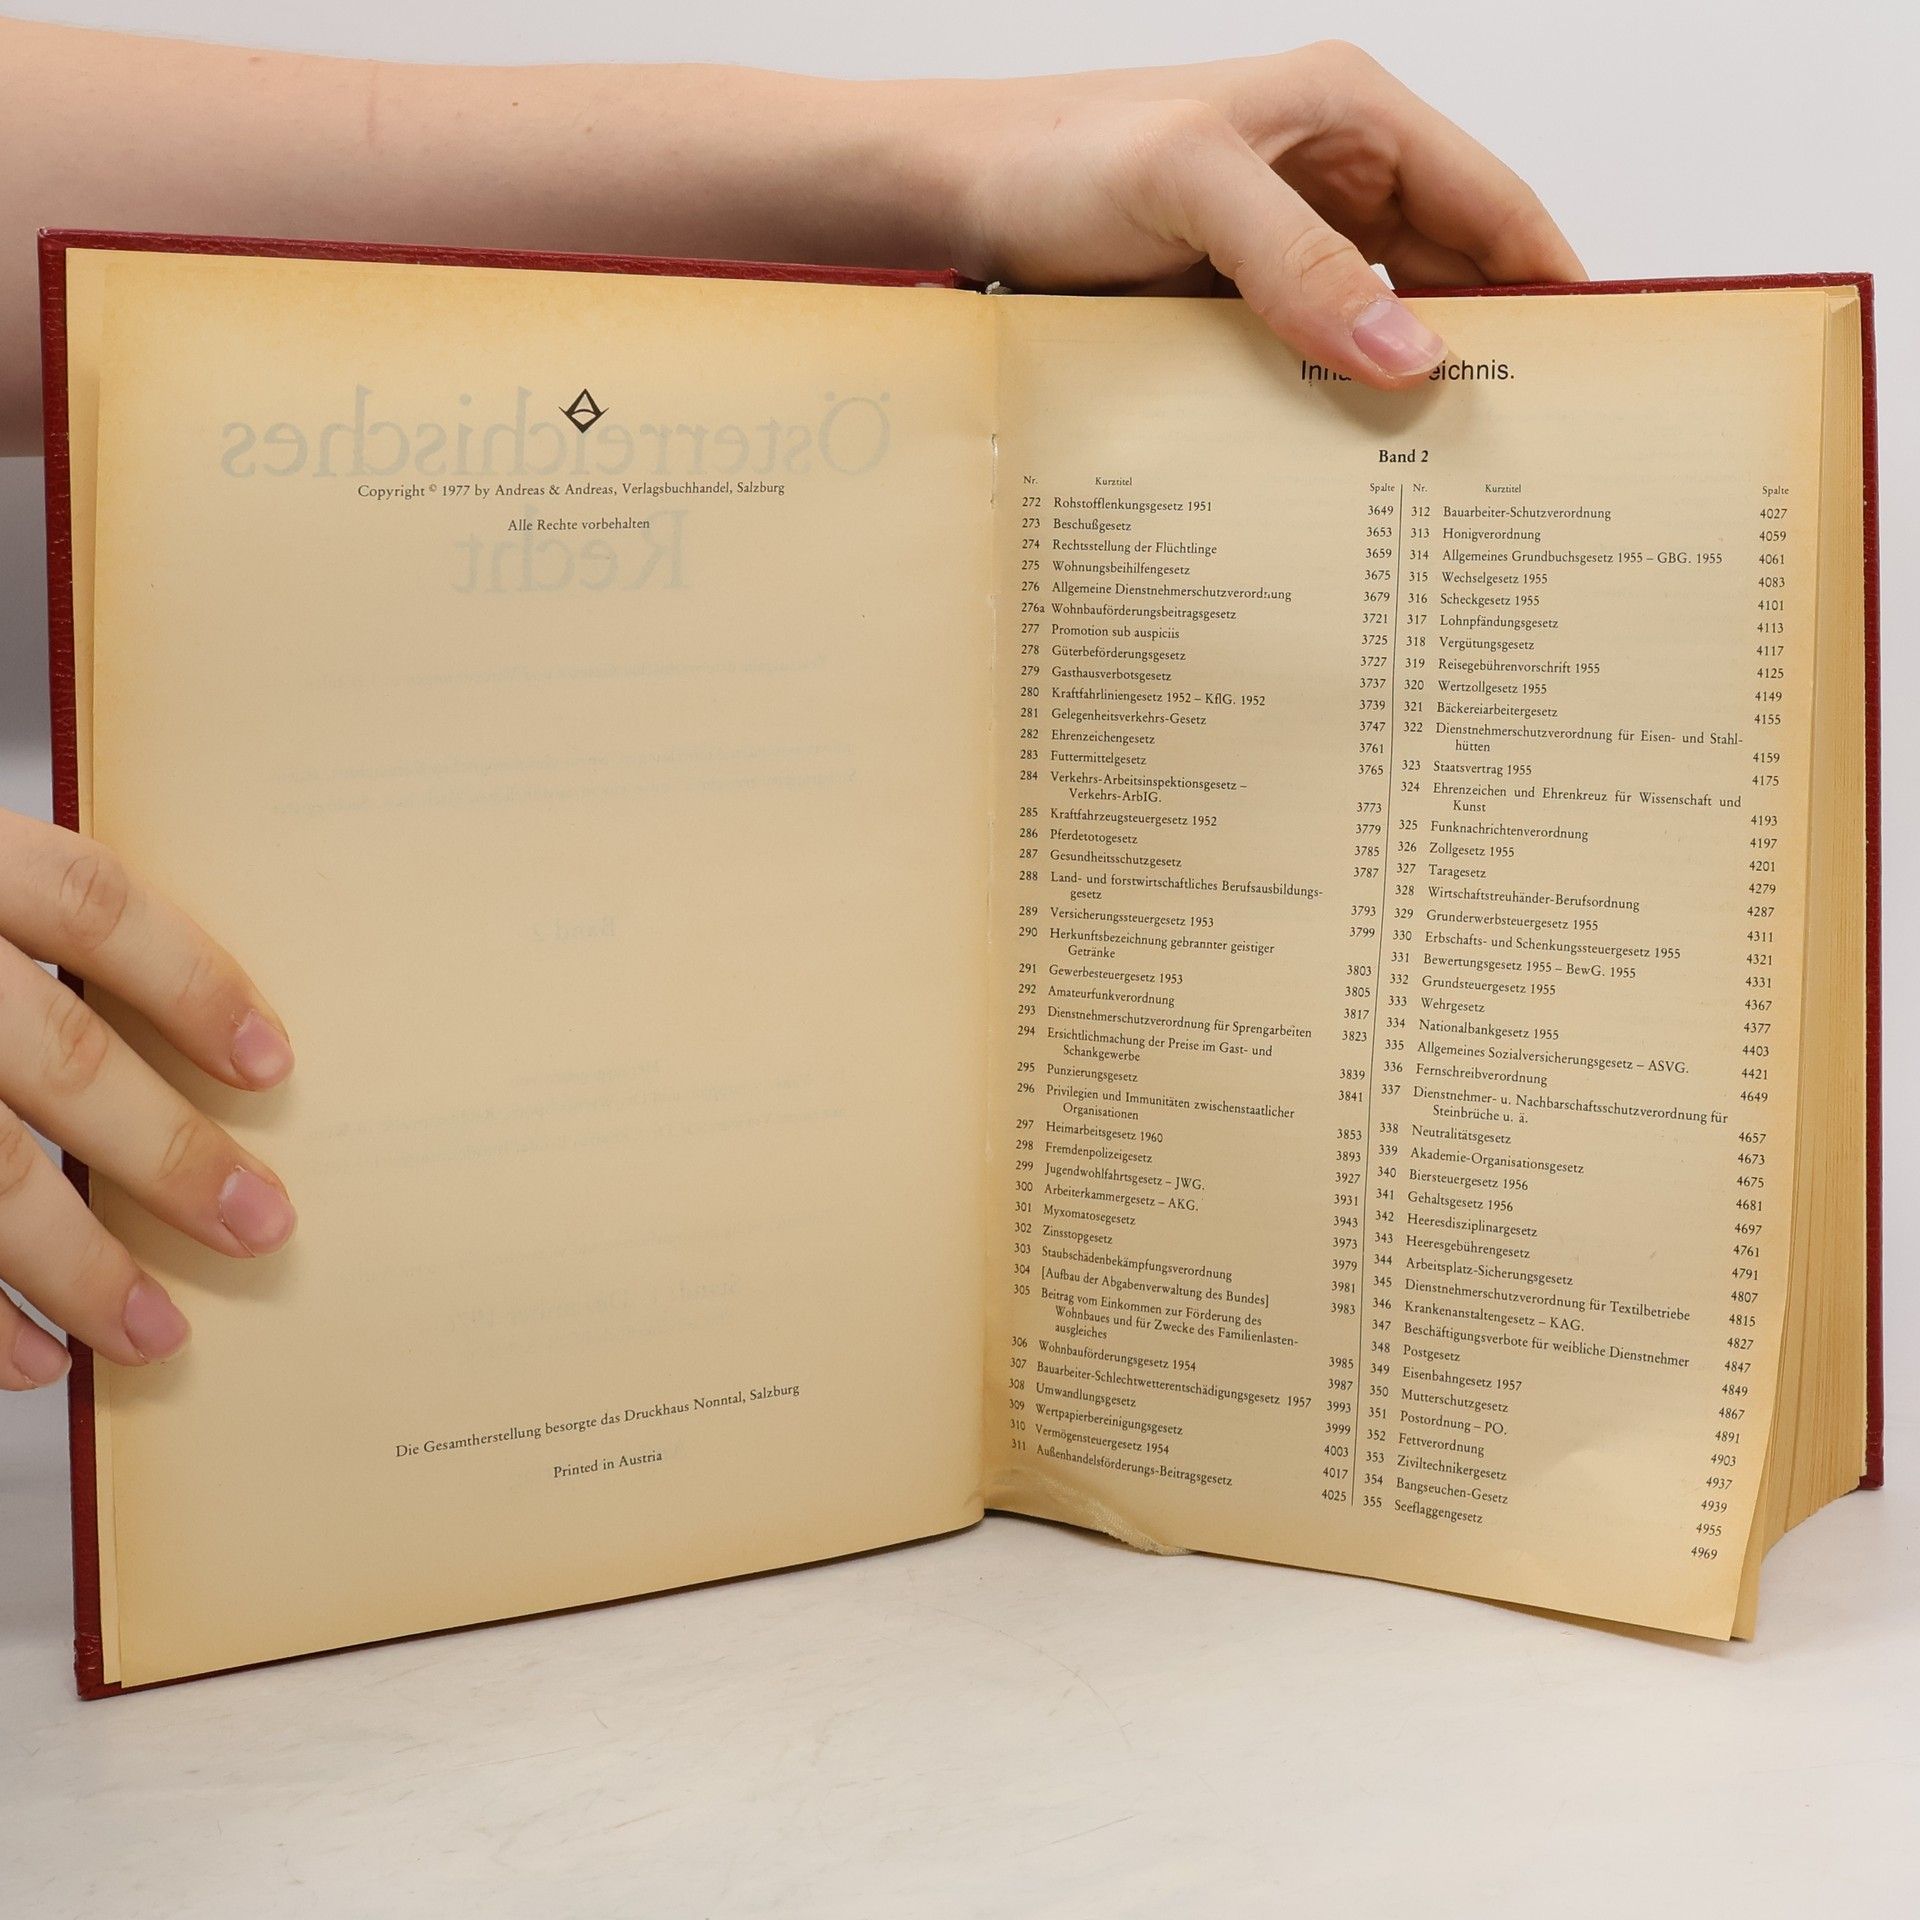 Copyright © 1977 by Andreas & Andreas, Verlagsbuchhandel, Salzburg
Alle Rechte vorbehalten
Die Gesamtherstellung besorgte das Druckhaus Nonntal, Salzburg
Printed in Austria
Inhaltsverzeichnis.
Band 2
Nr. Kurztitel Spalte
272 Rohstofflenkungsgesetz 1951 3649
273 Beschußgesetz 3653
274 Rechtsstellung der Flüchtlinge 3659
275 Wohnungsbeihilfengesetz 3675
276 Allgemeine Dienstnehmerschutzverordnung 3679
276a Wohnbauförderungsbeitragsgesetz 3721
277 Promotion sub auspiciis 3725
278 Güterbeförderungsgesetz 3727
279 Gasthausverbotsgesetz 3737
280 Kraftfahrliniengesetz 1952 – KflG. 1952 3739
281 Gelegenheitsverkehrs-Gesetz 3747
282 Ehrenzeichengesetz 3761
283 Futtermittelgesetz 3765
284 Verkehrs-Arbeitsinspektionsgesetz –
Verkehrs-ArbIG. 3773
285 Kraftfahrzeugsteuergesetz 1952 3779
286 Pferdetotogesetz 3785
287 Gesundheitsschutzgesetz 3787
288 Land- und forstwirtschaftliches Berufsausbildungs-
gesetz 3793
289 Versicherungssteuergesetz 1953 3799
290 Herkunftsbezeichnung gebrannter geistiger
Getränke 3803
291 Gewerbesteuergesetz 1953 3805
292 Amateurfunkverordnung 3817
293 Dienstnehmerschutzverordnung für Sprengarbeiten 3823
294 Ersichtlichmachung der Preise im Gast- und
Schankgewerbe 3839
295 Punzierungsgesetz 3841
296 Privilegien und Immunitäten zwischenstaatlicher
Organisationen 3853
297 Heimarbeitsgesetz 1960 3893
298 Fremdenpolizeigesetz 3927
299 Jugendwohlfahrtsgesetz – JWG. 3931
300 Arbeiterkammergesetz – AKG. 3943
301 Myxomatosegesetz 3973
302 Zinsstopgesetz 3979
303 Staubschädenbekämpfungsverordnung 3981
304 [Aufbau der Abgabenverwaltung des Bundes] 3983
305 Beitrag vom Einkommen zur Förderung des
Wohnbaues und für Zwecke des Familienlasten-
ausgleiches 3985
306 Wohnbauförderungsgesetz 1954 3987
307 Bauarbeiter-Schlechtwetterentschädigungsgesetz 1957 3993
308 Umwandlungsgesetz 3999
309 Wertpapierbereinigungsgesetz 4003
310 Vermögensteuergesetz 1954 4017
311 Außenhandelsförderungs-Beitragsgesetz 4025
Nr. Kurztitel Spalte
312 Bauarbeiter-Schutzverordnung 4027
313 Honigverordnung 4059
314 Allgemeines Grundbuchsgesetz 1955 – GBG. 1955 4061
315 Wechselgesetz 1955 4083
316 Scheckgesetz 1955 4101
317 Lohnpfändungsgesetz 4113
318 Vergütungsgesetz 4117
319 Reisegebührenvorschrift 1955 4125
320 Wertzollgesetz 1955 4149
321 Bäckereiarbeitergesetz 4155
322 Dienstnehmerschutzverordnung für Eisen- und Stahl-
hütten 4159
323 Staatsvertrag 1955 4175
324 Ehrenzeichen und Ehrenkreuz für Wissenschaft und
Kunst 4193
325 Funknachrichtenverordnung 4197
326 Zollgesetz 1955 4201
327 Taragesetz 4279
328 Wirtschaftstreuhänder-Berufsordnung 4287
329 Grunderwerbsteuergesetz 1955 4311
330 Erbschafts- und Schenkungssteuergesetz 1955 4321
331 Bewertungsgesetz 1955 – BewG. 1955 4331
332 Grundsteuergesetz 1955 4367
333 Wehrgesetz 4377
334 Nationalbankgesetz 1955 4403
335 Allgemeines Sozialversicherungsgesetz – ASVG. 4421
336 Fernschreibverordnung 4649
337 Dienstnehmer- u. Nachbarschaftsschutzverordnung für
Steinbrüche u. ä. 4657
338 Neutralitätsgesetz 4673
339 Akademie-Organisationsgesetz 4675
340 Biersteuergesetz 1956 4681
341 Gehaltsgesetz 1956 4697
342 Heeresdisziplinargesetz 4761
343 Heeresgebührengesetz 4791
344 Arbeitsplatz-Sicherungsgesetz 4807
345 Dienstnehmerschutzverordnung für Textilbetriebe 4815
346 Krankenanstaltengesetz – KAG. 4827
347 Beschäftigungsverbote für weibliche Dienstnehmer 4847
348 Postgesetz 4849
349 Eisenbahngesetz 1957 4867
350 Mutterschutzgesetz 4891
351 Postordnung – PO. 4903
352 Fettverordnung 4937
353 Ziviltechnikergesetz 4939
354 Bangseuchen-Gesetz 4955
355 Seeflaggengesetz 4969